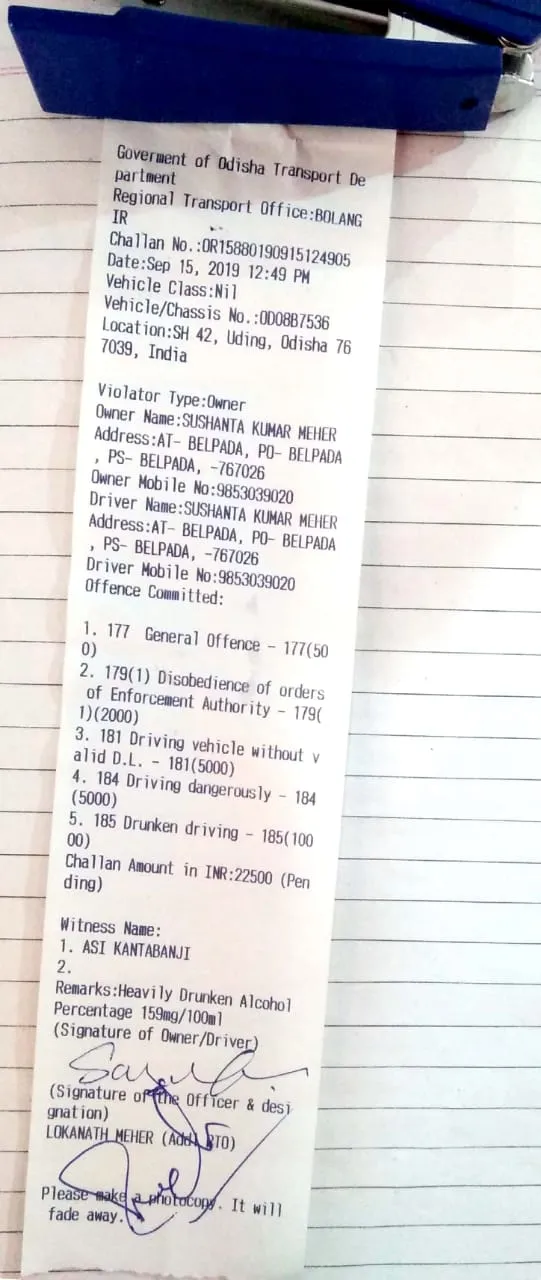 Goverment of Odisha Transport De
partment
Regional Transport Office:BOLANG
IR
Challan No.:OR15880190915124905
Date:Sep 15, 2019 12:49 PM
Vehicle Class:Nil
Vehicle/Chassis No.:OD08B7536
Location:SH 42, Uding, Odisha 76
7039, India
Violator Type:Owner
Owner Name:SUSHANTA KUMAR MEHER
Address:AT- BELPADA, PO- BELPADA
, PS- BELPADA, -767026
Owner Mobile No:9853039020
Driver Name:SUSHANTA KUMAR MEHER
Address:AT- BELPADA, PO- BELPADA
, PS- BELPADA, -767026
Driver Mobile No:9853039020
Offence Committed:
1. 177 General Offence - 177(50
0)
2. 179(1) Disobedience of orders
of Enforcement Authority - 179(
1)(2000)
3. 181 Driving vehicle without v
alid D.L. - 181(5000)
4. 184 Driving dangerously - 184
(5000)
5. 185 Drunken driving - 185(100
00)
Challan Amount in INR:22500 (Pen
ding)
Witness Name:
1. ASI KANTABANJI
2.
Remarks:Heavily Drunken Alcohol
Percentage 159mg/100ml
(Signature of Owner/Driver)
(Signature of the Officer & desi
gnation)
LOKANATH MEHER (Addl RTO)
Please make a photocopy. It will
fade away.